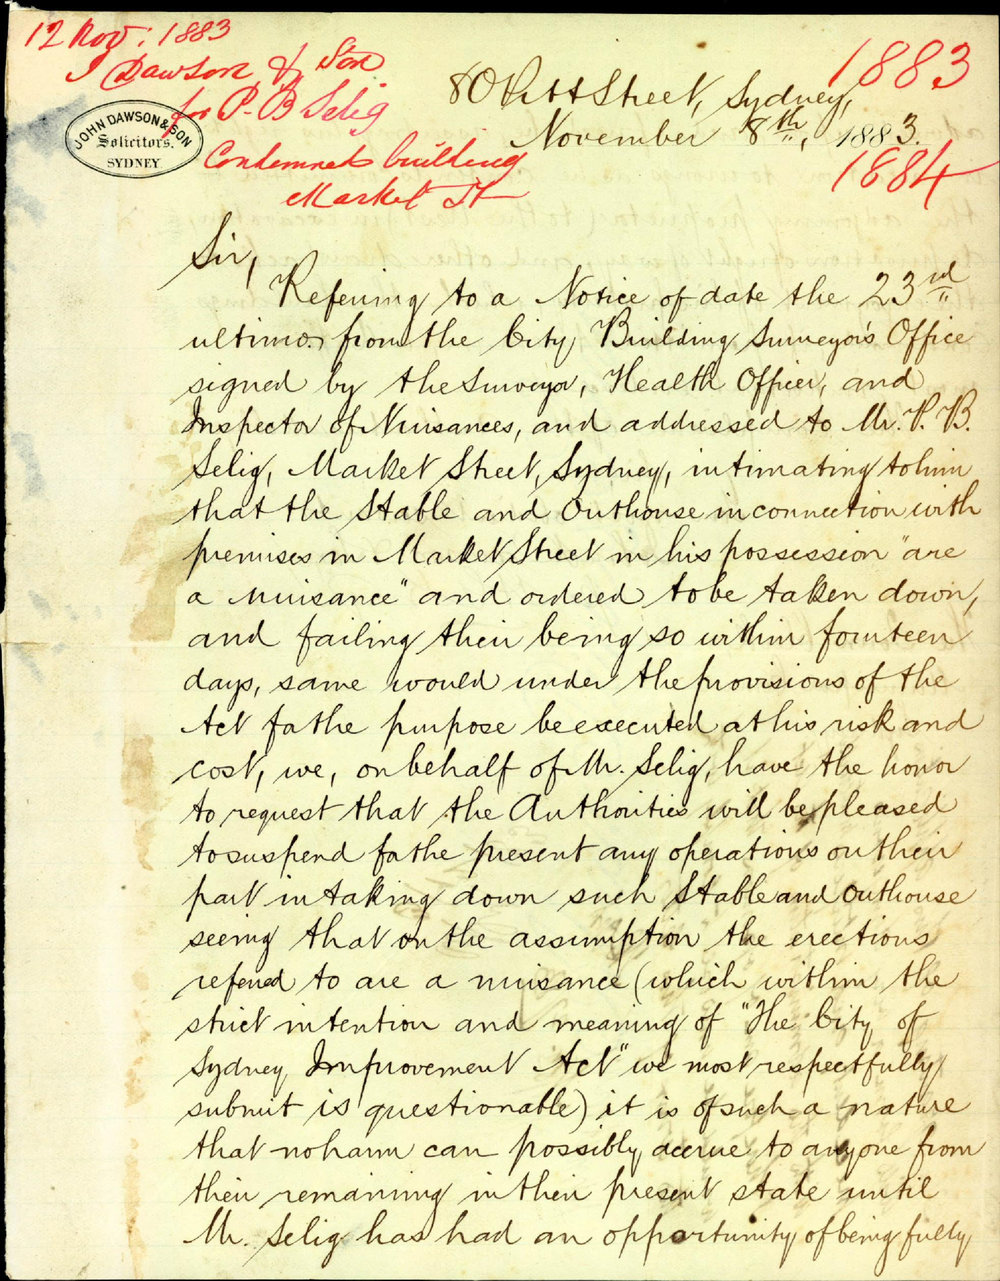 12 Nov: 1883
J Dawson & Son
for P. B Selig
Condemned building
Market St
1883
1884
JOHN DAWSON & SON
Solicitors.
SYDNEY
80 Pitt Street, Sydney,
November 8th, 1883.
Sir,
Referring to a Notice of date the 23rd
ultimo from the City Building Surveyor's Office
signed by the Surveyor, Health Officer, and
Inspector of Nuisances, and addressed to Mr. P. B.
Selig, Market Street, Sydney, intimating to him
that the Stable and Outhouse in connection with
premises in Market Street in his possession "are
a nuisance" and ordered to be taken down,
and failing their being so within fourteen
days, same would under the provisions of the
Act for the purpose be executed at his risk and
cost, we, on behalf of Mr. Selig, have the honor
to request that the Authorities will be pleased
to suspend for the present any operations on their
part in taking down such Stable and Outhouse
seeing that on the assumption the erections
referred to are a nuisance (which within the
strict intention and meaning of "The City of
Sydney Improvement Act" we most respectfully
submit is questionable) it is of such a nature
that no harm can possibly accrue to anyone from
their remaining in their present state until
Mr. Selig has had an opportunity of being fully